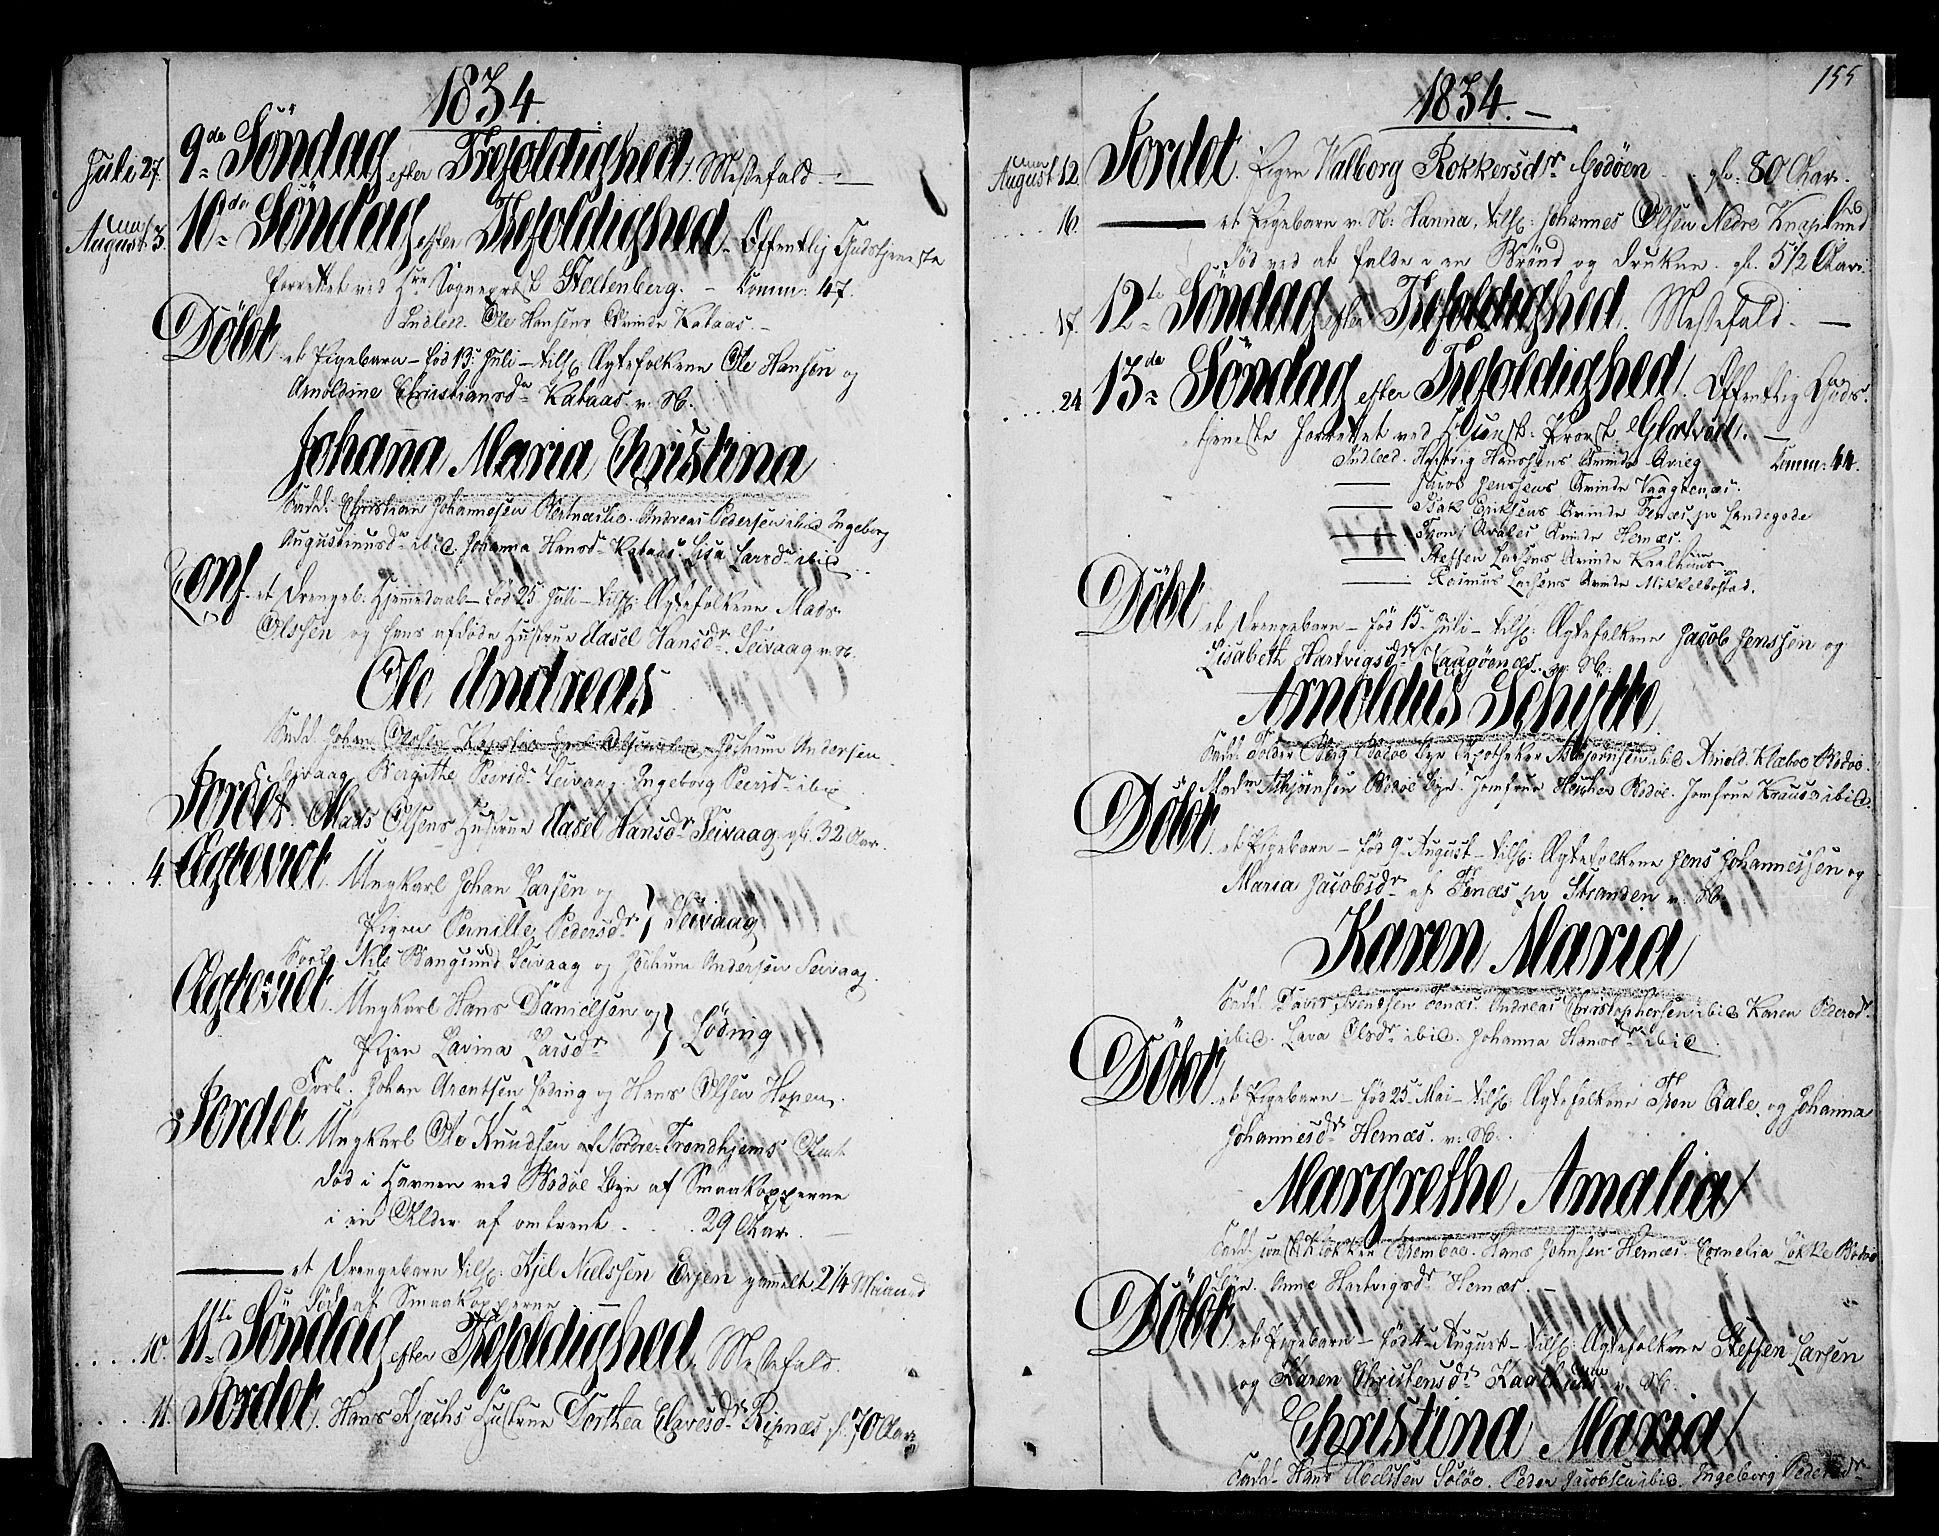 1834.
Juli 27. 9de Söndag efter Trefoldighed. Messefald.
August 3. 10de Söndag efter Trefoldighed. Offentlig Gudstjeneste
forrettet ved Hr. Sognepræst Stoltenberg. - Comm: 47.
Indled. Ole Hansens Qvinde Kataas. -
Döbt et Pigebarn - föd 13. Juli - tilh. Ægtefolkene Ole Hansen og
Arnoldine Christiansdr Kataas. v. N.
Johanna Maria Christina
Fadd. Christian Johannesen Andreas Pedersen ibid Ingeborg
Augustinusdr ibid. Johanna Hansdr Kataas. Lisa Larsdr ibid.
Conf. et Drengeb. Hjemmedaab - föd 25 Juli - tilh: Ægtefolkene Mads
Olssen og hans afdöde Hustrue Hansdr Seivaag v. N.
Ole Andreas
Fadd. Johan Olssen Jochum Andersen
Seivaag Bergitthe Peersdr Seivaag. Ingeborg Peersdr ibid.
Jordet. Mads Olsens Hustrue Hansdr Seivaag gl. 32 Aar.
4. Ægteviet. Ungkarl Johan Larsen og
Pigen Pernille Pedersdr } Seivaag
Forl. Nils Bangsund Seivaag og Jochum Andersen Seivaag.
Ægteviet. Ungkarl Hans Danielsen og
Pigen Lavina Larsdr } Löding
Forl. Johan Arentsen Löding og Hans Olsen Hopen.
Jordet Ungkarl Ole Knudsen af Nordre-Trondhjems Amt
död i Havnen ved Bodöe Bye af Smaakopperne
i en Alder af omtrent . . 29 Aar.
et Drengebarn tilh: Kjel Nielssen gammelt 2 1/4 Maaned
död af Smaakopperne
10. 11te Söndag efter Trefoldighed. Messefald.
11. Jordet. Hans Hustrue Dorthea Ripnæs gl. 70 Aar.
155
1834. -
August 12. Jordet. Pigen Walborg Rokkersdr Godöen . . gl: 80 Aar.
16. et Pigebarn v. N. Hanna, tilh: Johannes Olsen Nedre Knaplund
Död ved at falde i en Brönd og drukne. gl. 5 1/2 Aar.
17. 12te Söndag efter Trefoldighed. Messefald. -
24. 13de Söndag efter Trefoldighed. Offentlig Guds-
tjeneste forrettet ved Provst -
Indled. Hartvig Hanssens Qvinde Comm: 44.
Jacob Jenssens Qvinde Vaagöenæs.
Isak Eriksens Qvinde Fenæs pr Landegode
Tron Qvales Qvinde Hernæs.
Steffen Larsens Qvinde
Rasmus Larsens Qvinde Mikkelbostad.
Döbt et Drengebarn - föd 15 Juli - tilh: Ægtefolkene Jacob Jenssen og
Lisabeth Hartvigsdr Vaagöenæs. v. N.
Arnoldus Schytte
Fadd. Bodöe Bye Apotheker ibid Arnold Bodöe.
Bodöe Bye. Jomfrue Bodöe. Jomfrue ibid.
Döbt et Pigebarn - föd 9. August - tilh: Ægtefolkene Jens Johannessen og
Maria Jacobsdr af Fenæs pr Stranden v. N.
Karen Maria
Fadd. Svendsen Fenæs. Andreas Christophersen ibid Karen Pedersd.
ibid. Lava Olsdr ibid. Johanna Hansdr ibid.
Döbt et Pigebarn - föd 25. Mai - tilh: Ægtefolkene Tron Qale og Johanna
Johannesdr Hernæs. v. N.
Margrethe Amalia
Fadd. Hans Johnsen Hernæs. Cornelia Lökke Bodöe
Bye. Anne Hartvigsdr Hernæs.
Döbt et Pigebarn - föd August - tilh: Ægtefolkene Steffen Larsen
og Karen Christensdr v. N.
Christina Maria
Fadd. Hans Nielssen Peder Jacobsen ibid. Ingeborg Pedersdr